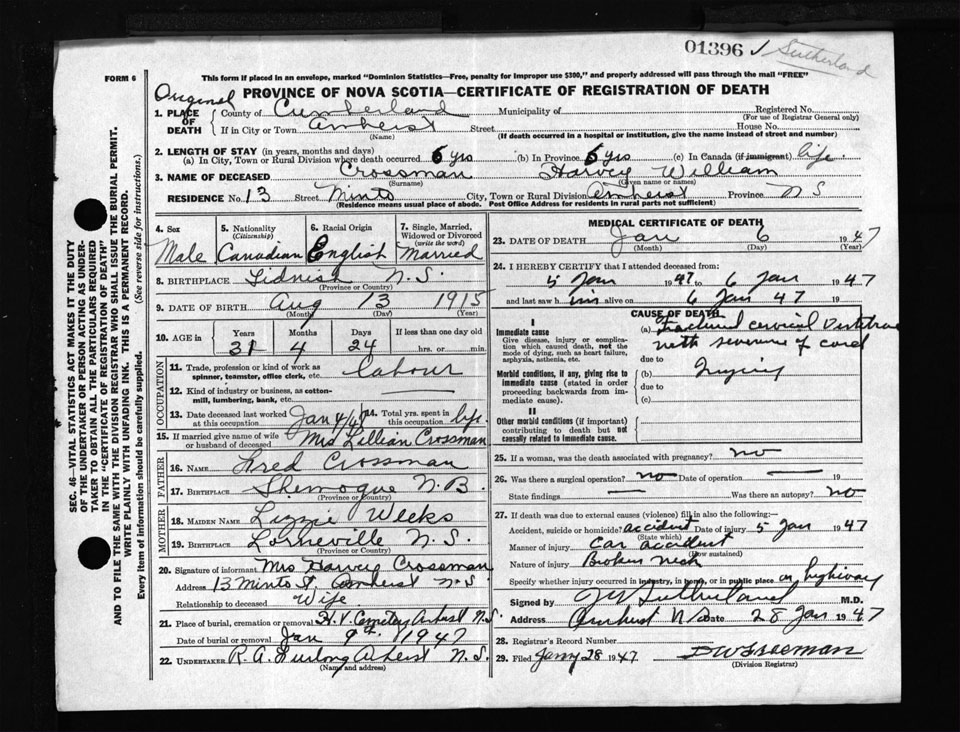 01396 ✓ Sutherland
FORM 6
This form if placed in an envelope, marked "Dominion Statistics—Free, penalty for improper use $300," and properly addressed will pass through the mail "FREE"
Original
PROVINCE OF NOVA SCOTIA—CERTIFICATE OF REGISTRATION OF DEATH
1. PLACE OF DEATH { County of Cumberland Municipality of Registered No.
(For use of Registrar General only)
If in City or Town Amherst Street House No.
(Name) (If death occurred in a hospital or institution, give the name instead of street and number)
2. LENGTH OF STAY (in years, months and days)
(a) In City, Town or Rural Division where death occurred 6 yrs (b) In Province 6 yrs (c) In Canada (if immigrant) life.
3. NAME OF DECEASED Crossman Harvey William
(Surname) (Given name or names)
RESIDENCE No. 13 Street Minto City, Town or Rural Division Amherst Province N S
(Residence means usual place of abode. Post Office Address for residents in rural parts not sufficient)
SEC. 46—VITAL STATISTICS ACT MAKES IT THE DUTY
OF THE UNDERTAKER OR PERSON ACTING AS UNDER-
TAKER TO OBTAIN ALL THE PARTICULARS REQUIRED
IN THE "CERTIFICATE OF REGISTRATION OF DEATH"
AND TO FILE THE SAME WITH THE DIVISION REGISTRAR WHO SHALL ISSUE THE BURIAL PERMIT.
WRITE PLAINLY WITH UNFADING INK. THIS IS A PERMANENT RECORD.
Every item of information should be carefully supplied. (See reverse side for instructions.)
4. Sex 5. Nationality (Citizenship) 6. Racial Origin 7. Single, Married, Widowed or Divorced (write the word)
Male Canadian English Married
8. BIRTHPLACE Tidnish N.S.
(Province or Country)
9. DATE OF BIRTH Aug 13 1915
(Month) (Day) (Year)
10. AGE in { Years Months Days If less than one day old
31 4 24 hrs. or min.
OCCUPATION
11. Trade, profession or kind of work as spinner, teamster, office clerk, etc. labour
12. Kind of industry or business, as cotton-mill, lumbering, bank, etc. —
13. Date deceased last worked at this occupation Jan 4/47 14. Total yrs. spent in this occupation life.
15. If married give name of wife or husband of deceased Mrs Lillian Crossman
FATHER
16. NAME Fred Crossman
17. BIRTHPLACE Shemogue N.B.
(Province or Country)
MOTHER
18. MAIDEN NAME Lizzie Weeks
19. BIRTHPLACE Lorneville N.S.
(Province or Country)
20. Signature of informant Mrs Harvey Crossman
Address 13 Minto St, Amherst N S
Relationship to deceased Wife
21. Place of burial, cremation or removal H. V. Cemetery Amherst N.S.
Date of burial or removal Jan 9th. 1947
22. UNDERTAKER R. A. Furlong Amherst N.S.
(Name and address)
MEDICAL CERTIFICATE OF DEATH
23. DATE OF DEATH Jan 6 1947
(Month) (Day)
24. I HEREBY CERTIFY that I attended deceased from:
5 Jan 1947 to 6 Jan 1947
and last saw him alive on 6 Jan 47 19
CAUSE OF DEATH
I
Immediate cause
Give disease, injury or complication which caused death, not the mode of dying, such as heart failure, asphyxia, asthenia, etc.
(a) Fractured cervical Vertebrae
with severing of cord
due to
Morbid conditions, if any, giving rise to immediate cause (stated in order proceeding backwards from immediate cause).
(b)
due to
(c)
II
Other morbid conditions (if important) contributing to death but not causally related to immediate cause.
25. If a woman, was the death associated with pregnancy? no
26. Was there a surgical operation? no Date of operation — 19
State findings — Was there an autopsy? no
27. If death was due to external causes (violence) fill in also the following:—
Accident, suicide or homicide? accident Date of injury 5 Jan 1947
(State which)
Manner of injury Car accident
(How sustained)
Nature of injury Broken neck
Specify whether injury occurred in industry, in home, or in public place on highway
Signed by J W Sutherland M.D.
Address Amherst N S Date 28 Jan 1947
28. Registrar's Record Number
29. Filed Jany 28 1947 D W Freeman
(Division Registrar)